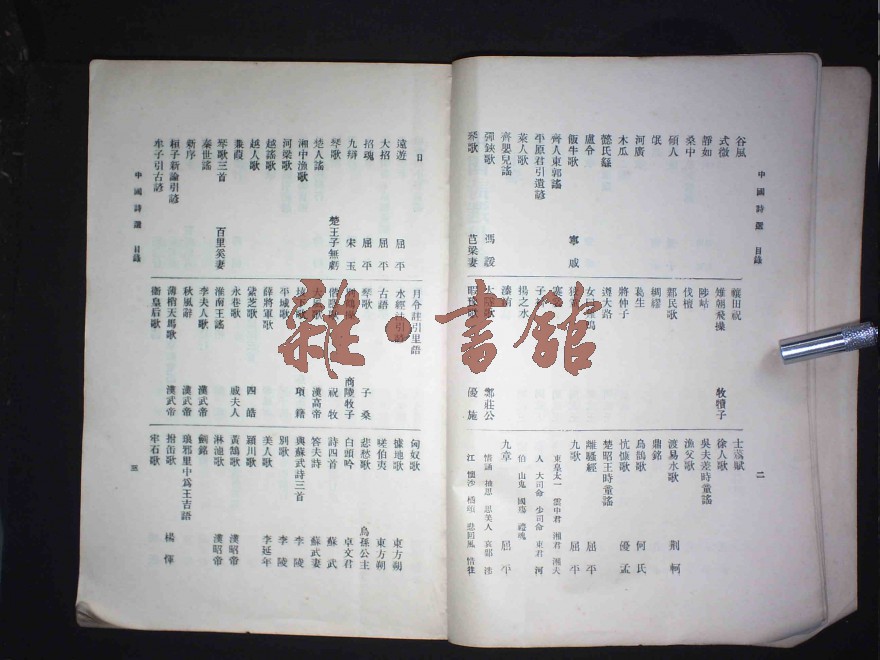 中國詩選 目錄
二
谷風
式微
靜如
桑中
碩人
氓
河廣
木瓜
懿氏繇
盧令
飯牛歌 寧戚
齊人東郭謠
平原君引遺諺
萊人歌
齊嬰兒謠
彈鋏歌 馮諼
琴歌 芑梁妻
穰田祝
雉朝飛操 牧犢子
陟岵
伐檀
鄭民歌
綢繆
葛生
將仲子
遵大路
女曰雞鳴
揚之水
溱洧
鄭莊公
暇豫歌 優施
士蒍賦
徐人歌
吳夫差時童謠
漁父歌
渡易水歌 荆軻
鼎銘
烏鵲歌 何氏
忼慷歌 優孟
楚昭王時童謠
離騷經 屈平
九歌 屈平
東皇太一 雲中君 湘君 湘夫
人 大司命 少司命 東君 河
伯 山鬼 國殤 禮魂
九章 屈平
惜誦 抽思 思美人 哀郢 涉
江 懷沙 橘頌 悲回風 惜往
日
遠遊 屈平
大招 屈平
招魂 屈平
九辯 宋玉
琴歌 楚王子無虧
楚人謠
湘中漁歌
河梁歌
越謠歌
越人歌
蒹葭
琴歌三首 百里奚妻
秦世謠
新序
桓子新論引諺
牟子引古諺
月令註引里語
水經註引諺
古語
琴歌 子桑
商陵牧子
偕隱歌 祝牧
大風歌 漢高帝
垓下歌 項籍
平城歌
薛將軍歌
紫芝歌 四皓
永巷歌 戚夫人
淮南王謠
李夫人歌 漢武帝
秋風辭 漢武帝
薄梢天馬歌 漢武帝
衛皇后歌
匈奴歌
據地歌 東方朔
嗟伯夷 東方朔
悲愁歌 烏孫公主
白頭吟 卓文君
詩四首 蘇武
答夫詩 蘇武妻
與蘇武詩三首 李陵
別歌 李陵
美人歌 李延年
潁川歌
黃鵠歌 漢昭帝
淋池歌 漢昭帝
鋗銘
瑯邪里中爲王吉語
拊缶歌 楊惲
牢石歌
中國詩選 目錄
三
雜·書館